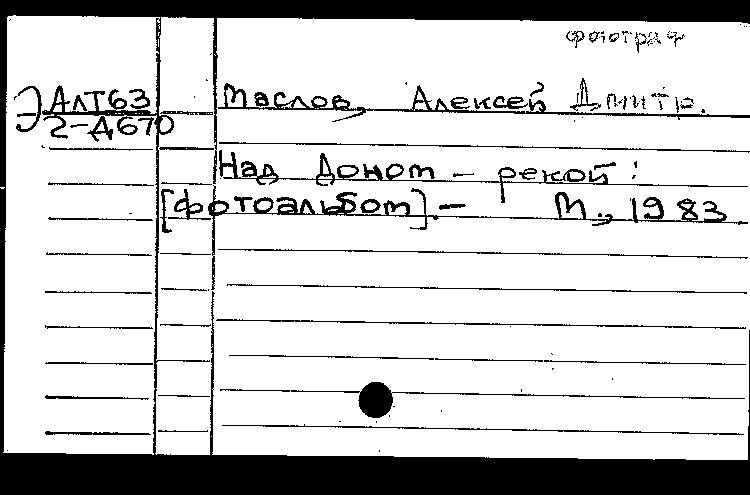 фотограф
Э АлТ63
2-Д670
Маслов, Алексей Дмитр.
Над Доном - рекой:
[фотоальбом].- М., 1983